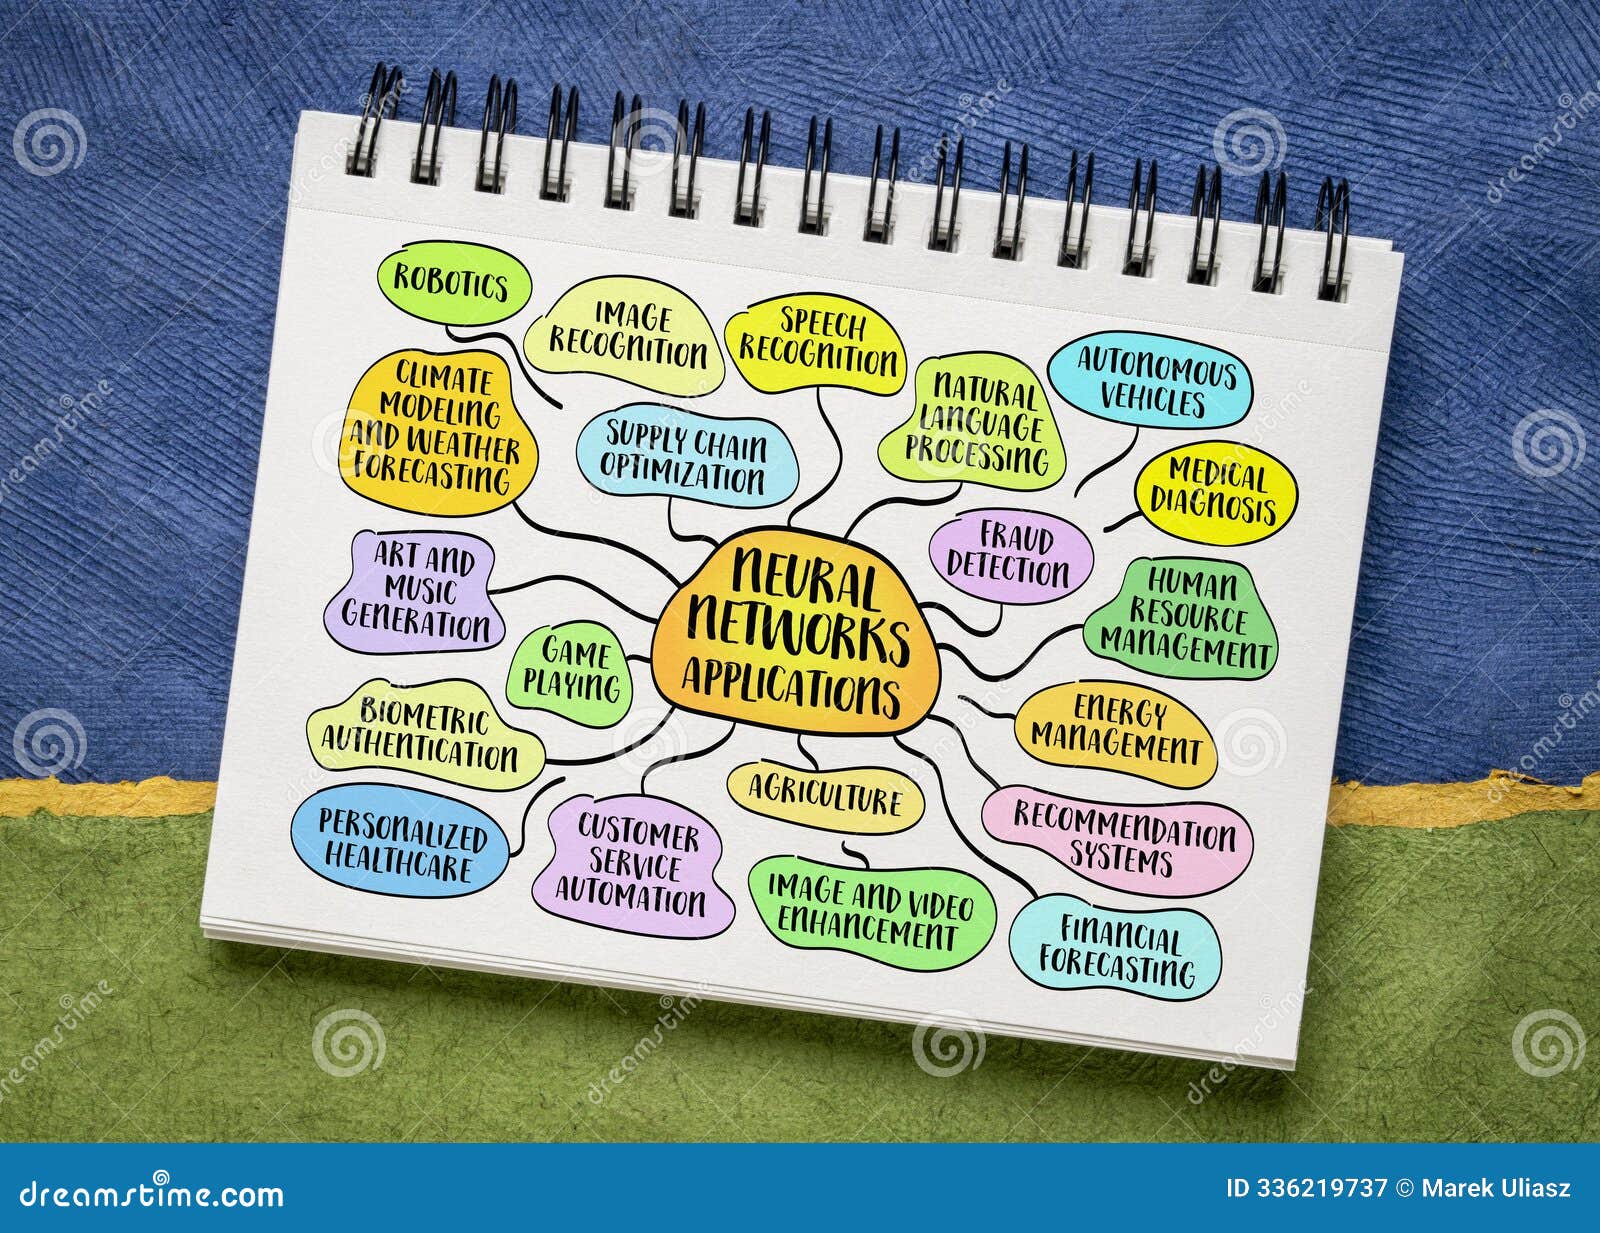 ROBOTICS
IMAGE
RECOGNITION
SPEECH
RECOGNITION
AUTONOMOUS
VEHICLES
CLIMATE
MODELING
AND WEATHER
FORECASTING
SUPPLY CHAIN
OPTIMIZATION
NATURAL
LANGUAGE
PROCESSING
MEDICAL
DIAGNOSIS
FRAUD
DETECTION
ART AND
MUSIC
GENERATION
NEURAL
NETWORKS
APPLICATIONS
HUMAN
RESOURCE
MANAGEMENT
GAME
PLAYING
BIOMETRIC
AUTHENTICATION
ENERGY
MANAGEMENT
AGRICULTURE
RECOMMENDATION
SYSTEMS
PERSONALIZED
HEALTHCARE
CUSTOMER
SERVICE
AUTOMATION
IMAGE AND VIDEO
ENHANCEMENT
FINANCIAL
FORECASTING
dreamstime.com
ID 336219737 © Marek Uliasz